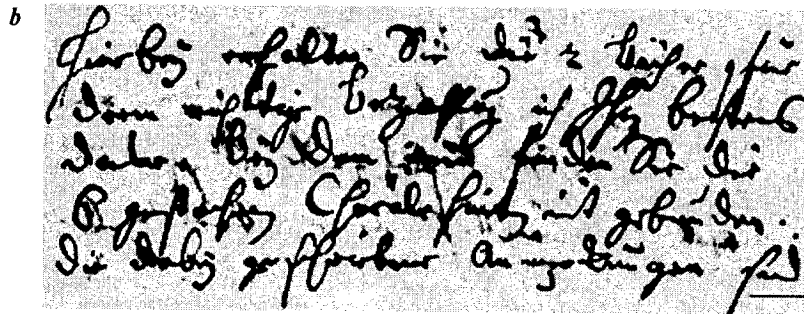 b
Hierbey erhalten Sie die 2 bücher, für
deren richtige bezahlung ich Ihnen bestens
dancke, bey dem einen finden Sie die
gestochen Choräle hinten mit gebunden.
die dabey geschriebene Anmerckungen sind